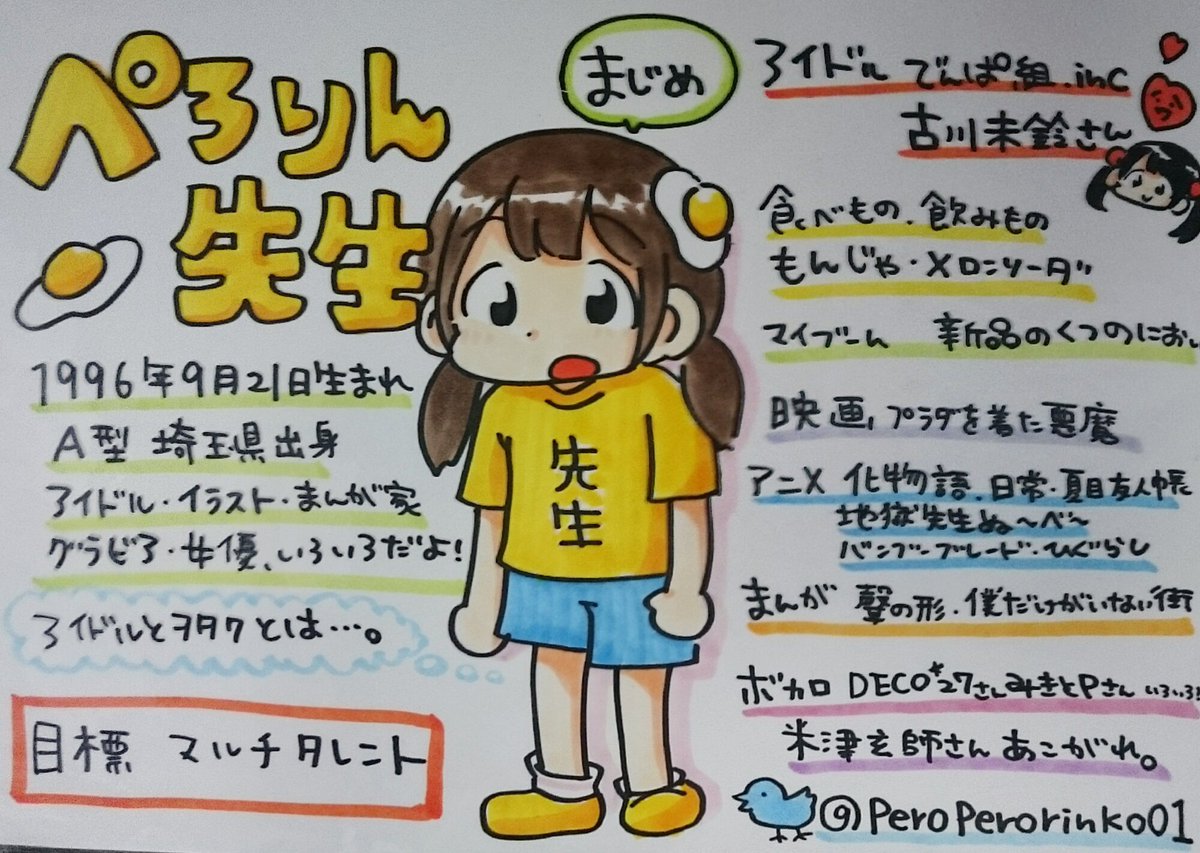 ぺろりん
先生
1996年9月21日生まれ
A型 埼玉県出身
アイドル・イラスト・まんが家
グラビア・女優、いろいろだよ!
アイドルとヲタクとは…。
目標 マルチタレント
まじめ
先生
アイドル でんぱ組.inc
古川未鈴さん
食べもの、飲みもの
もんじゃ・メロンソーダ
マイブーム 新品のくつのにおい
映画, プラダを着た悪魔
アニメ 化物語、日常・夏目友人帳
地獄先生ぬ〜べ〜
バンブーブレード・ひぐらし
まんが 聲の形・僕だけがいない街
ボカロ DECO*27さん みきとPさん いろいろ!
米津玄師さん あこがれ。
@PeroPerorinko01